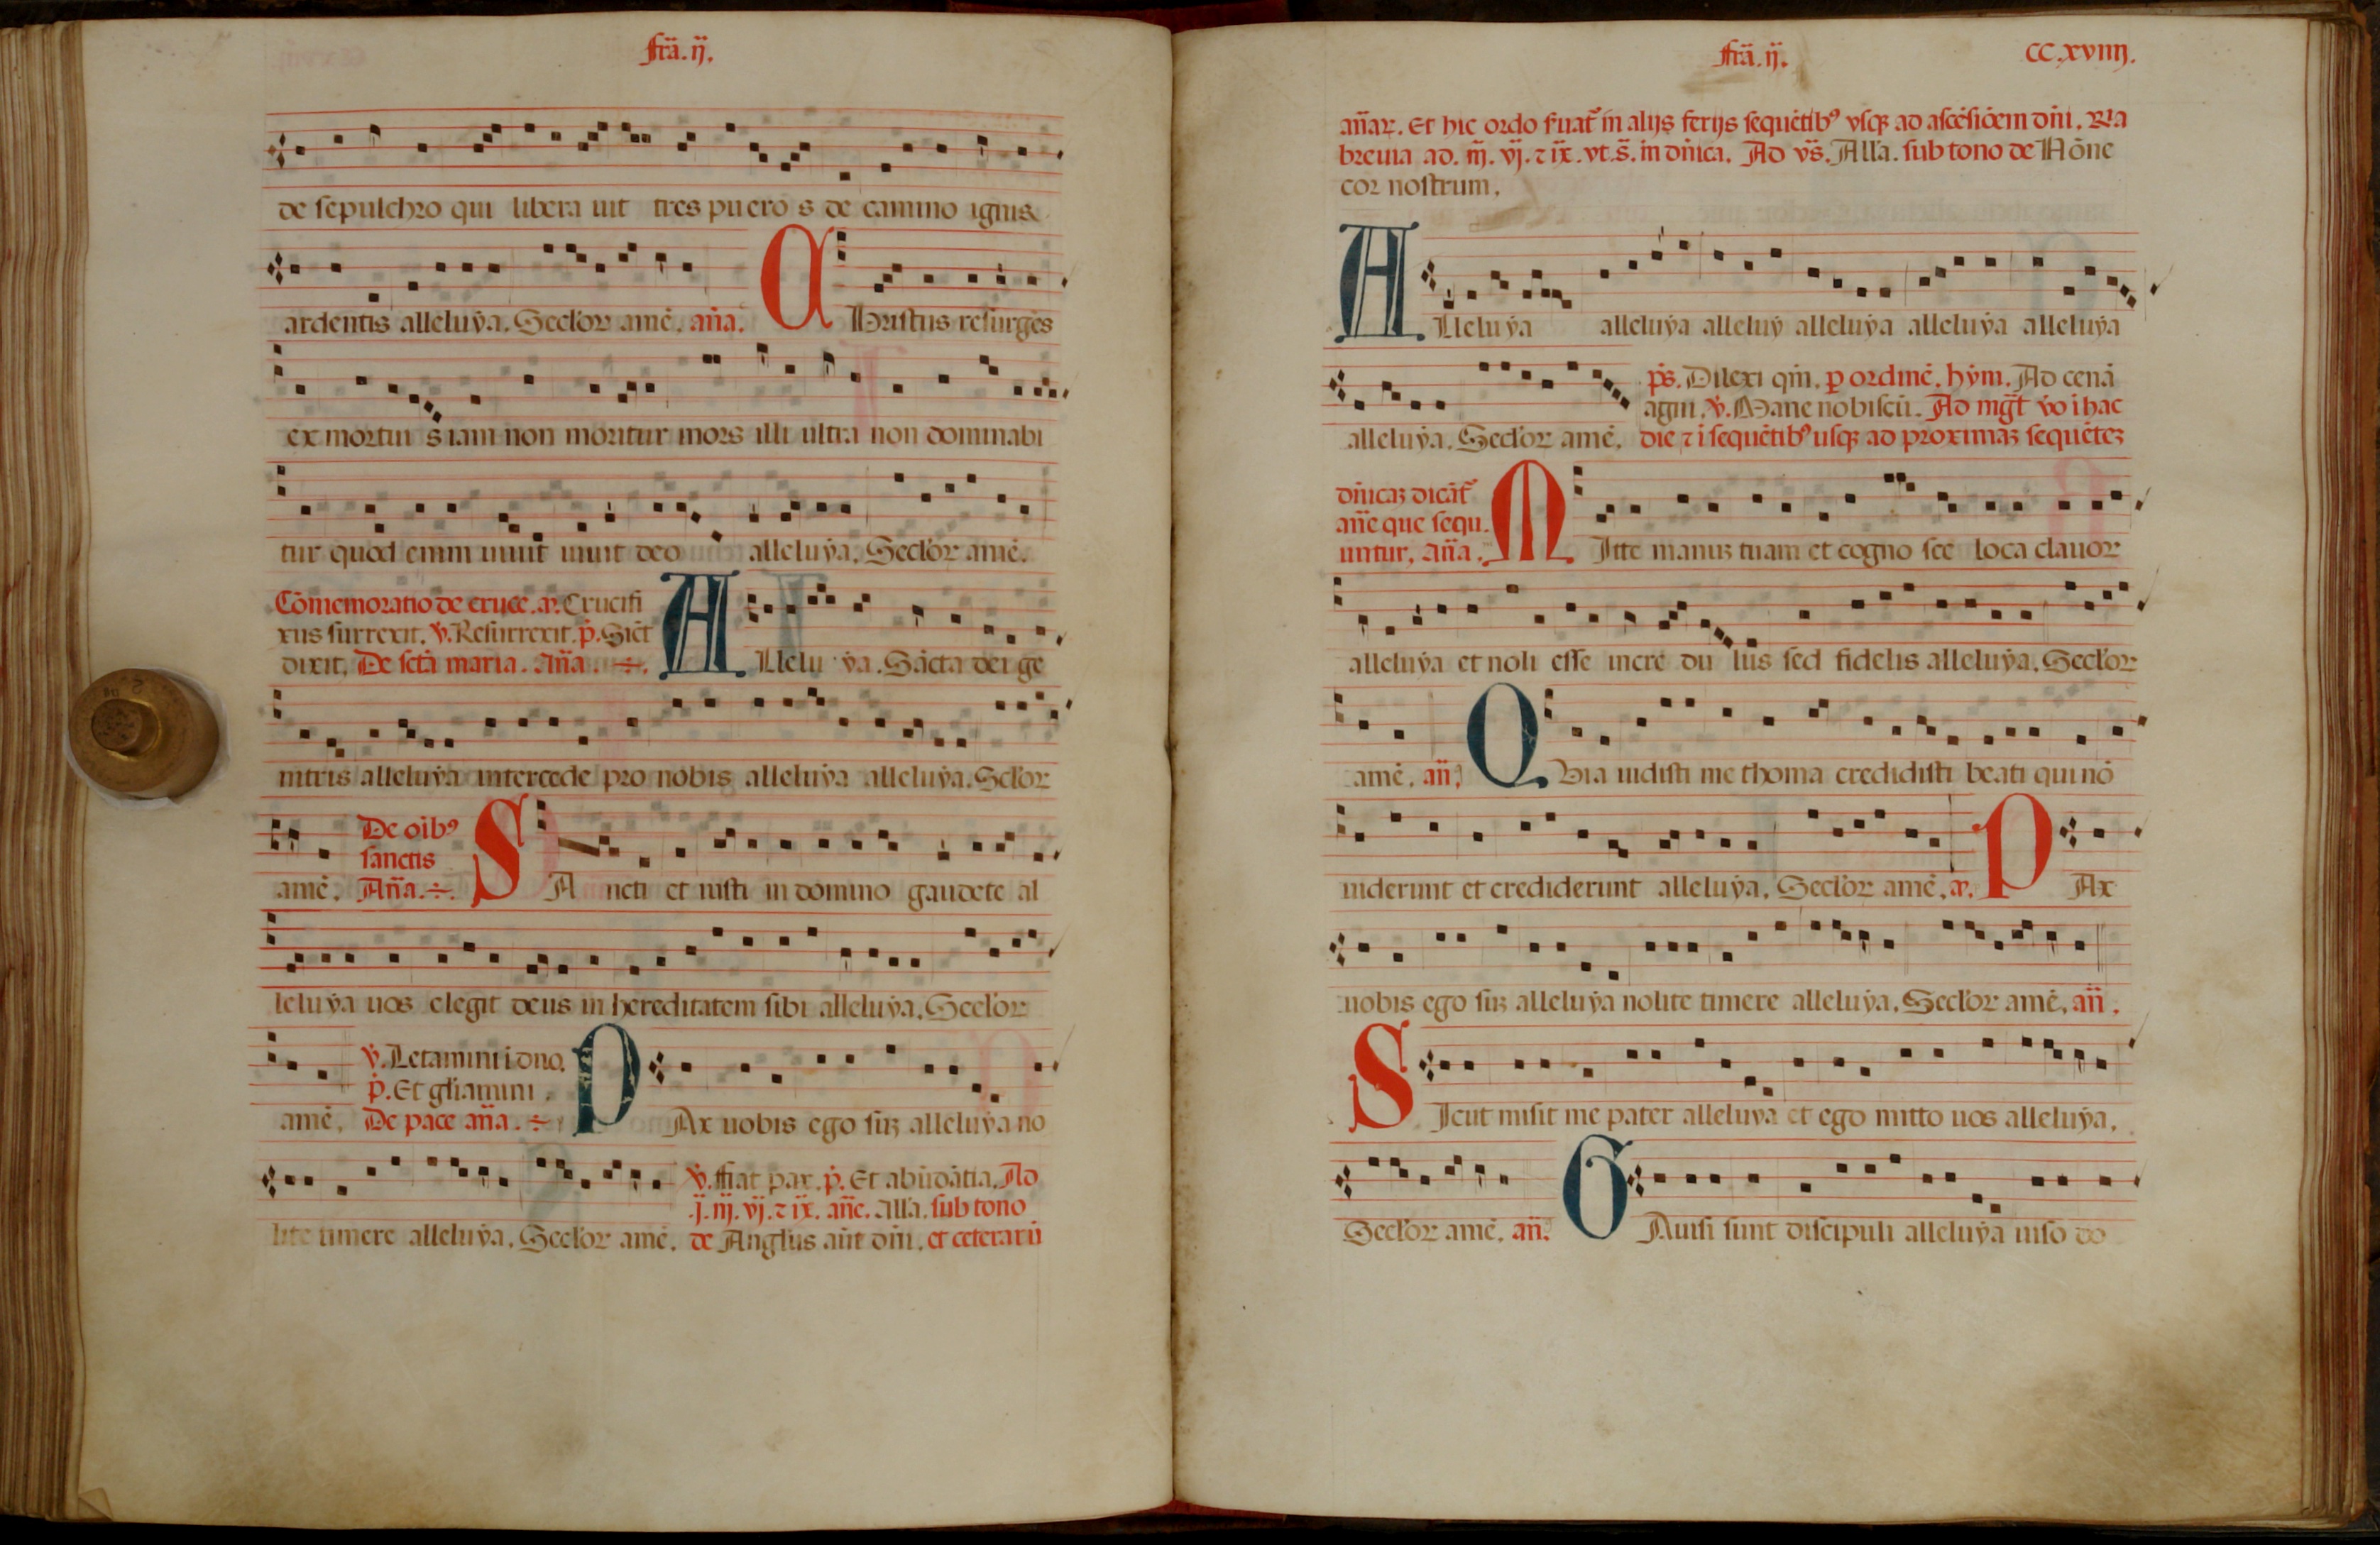 fr̃a. ij̃.
de sepulchro qui libera uit tres pu ero s de camino ignis
ardentis alleluẏa. Secl'or amē. an̄a. Christus resurgēs
ex mortui s iam non moritur mors illi ultra non dominabi
tur quod enim uiuit uiuit deo alleluẏa. Secl'or amē.
Cōmemoratio de cruce. Crucifi
xus surrexit. v̇. Resurrexit. ṗ. Sic̄t
dixit. De sc̄tā maria. An̄a. ÷.
ALlelu ẏa. Sācta dei ge
nitris alleluẏa intercede pro nobis alleluẏa alleluẏa. Scl'or
amē.
De oīb⁹
sanctis
An̄a. ÷.
SA ncti et iusti in domino gaudete al
leluẏa uos elegit deus in hereditatem sibi alleluẏa. Secl'or
amē.
v̇. Letamini i dn̄o.
ṗ. Et gl'iamini.
De pace an̄a. ÷
PAx uobis ego suꝫ alleluẏa no
lite timere alleluẏa. Secl'or amē.
v̇. ffiat pax. ṗ. Et abūdātia. Ad
.j̄. iij̄. vj̄. ⁊ ix̄. an̄e. Alla. sub tono
de Angl'us aūt dn̄i. et ceterarū
fr̃a. ij̃.
CC.xviiij.
an̄aꝝ. Et hic ordo suat᷑ in alijs ferijs sequētib⁹ vsqꝫ ad ascēsiōem dn̄i. R̄ia
breuia ad. iij̄. vj̄. ⁊ ix̄. vt. s̄. in dn̄ica. Ad v̄s. All'a. sub tono de Nōne
cor nostrum.
ALleluẏa alleluẏa alleluẏ alleluẏa alleluẏa alleluẏa
alleluẏa. Secl'or amē.
p̄s. Dilexi qm̄. ꝑ ordinē. hẏm. Ad cenā
agni. v̇. Mane nobiscū. Ad mgt̄ v̇o i hac
die ⁊ i sequētib⁹ usqꝫ ad proximaꝫ sequēteꝫ
dn̄icaꝫ dicāt᷑
an̄e que sequ.
untur. An̄a.
MItte manuꝫ tuam et cogno sce loca clauor
alleluẏa et noli esse incre du lus sed fidelis alleluẏa. Secl'or
amē. an̄.
QVia uidisti me thoma credidisti beati qui nō
uiderunt et crediderunt alleluẏa. Secl'or amē. a. PAx
uobis ego suꝫ alleluẏa nolite timere alleluẏa. Secl'or amē. an̄.
SIcut misit me pater alleluẏa et ego mitto uos alleluẏa.
Secl'or amē. an̄. GAuisi sunt discipuli alleluẏa uiso do